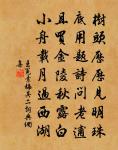 樹頭歷歷見明珠
底用題詩問老逋
且買金陵秋露白
小舟載月過西湖